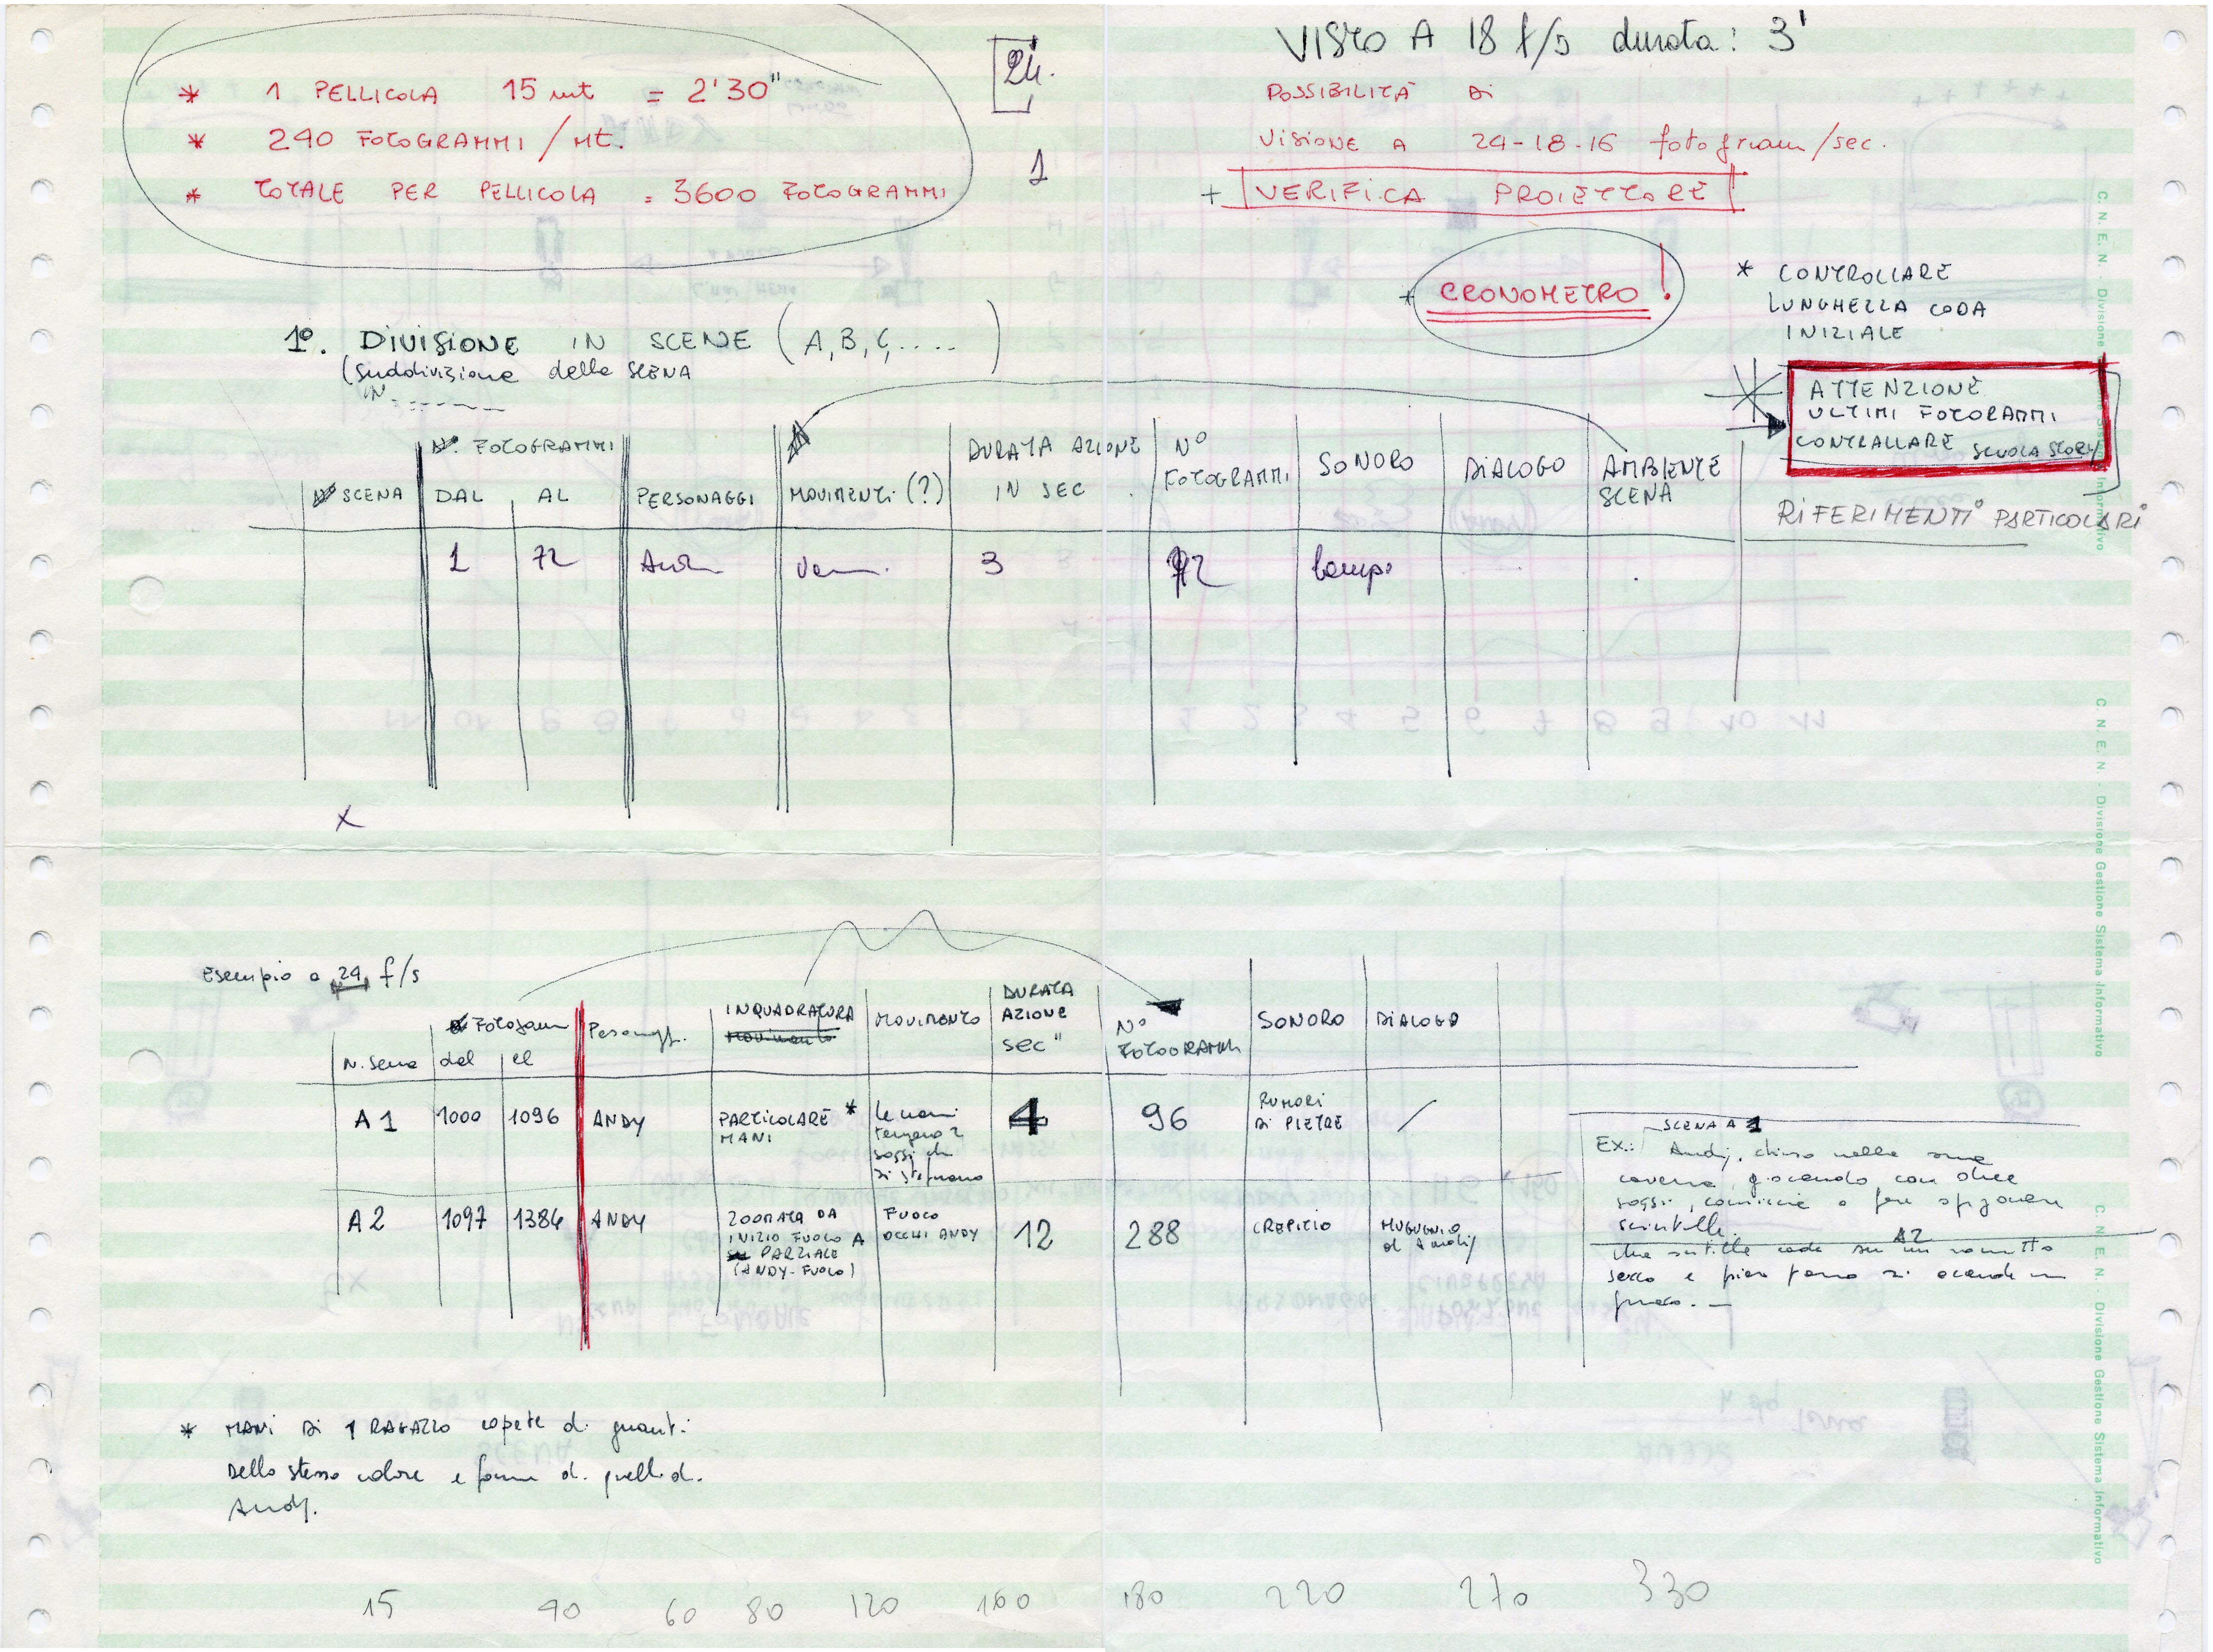 * 1 PELLICOLA 15 mt = 2'30"
* 240 FOTOGRAMMI / Mt.
* TOTALE PER PELLICOLA = 3600 FOTOGRAMMI
24.
1
VISTO A 18 f/s durata: 3'
POSSIBILITÀ Di
VisionE A 24-18-16 fotogram/sec.
+ VERIFICA PROIETTORE
+ CRONOMETRO!
* CONTROLLARE
LUNGHEZZA CODA
INIZIALE
ATTENZIONE
ULTIMI FOTORAMMI
CONTRALLARE SCUOLA STORY
RIFERIMENTI PARTICOLARI
1º. DIVISIONE IN SCENE (A, B, C, ....)
(suddivisione della SCENA
IN -------
SCENA
Nº. FOTOGRAMMI
DAL AL
PERSONAGGI
MOVIMENTI (?)
DURATA AZIONE
IN SEC.
Nº
FOTOGRAMMI
SONORO
DiALOGO
AMBIENTE
SCENA
1 72 3 72
X
Esempio a 24 f/s
N. Scena
dal al
INQUADRATURA
Movimento
MOVIMENTO
DURATA
AZIONE
SEC"
Nº
FOTOGRAMMI
SONORO
DiALOGO
A1 1000 1096 ANDY
PARTICOLARE *
MANI
Le mani
tengono 2
sassi che
si sfregano
4
96
RUMORI
Di PIETRE
/
A2 1097 1384 ANDY
ZOOMATA DA
INIZIO FUOCO A
PARZIALE
(ANDY-FUOCO)
FUOCO
OCCHI ANDY
12
288
CREPITIO
MUGUGNIO
di Andy
SCENA A1
EX.: Andy, chiuso nella sua
caverna, giocando con due
sassi, comincia a fare sprizzare
scintille.
A2
Una scintilla cade su un rametto
secco e pian piano si accende un
fuoco. —
* MANI Di 1 RAGAZZO coperte di guanti
Dello stesso colore e forma di quelli di
Andy.
15 40 60 80 120 160 180 220 270 330
C. N. E. N. - Divisione Gestione Sistema Informativo
C. N. E. N. - Divisione Gestione Sistema Informativo
C. N. E. N. - Divisione Gestione Sistema Informativo